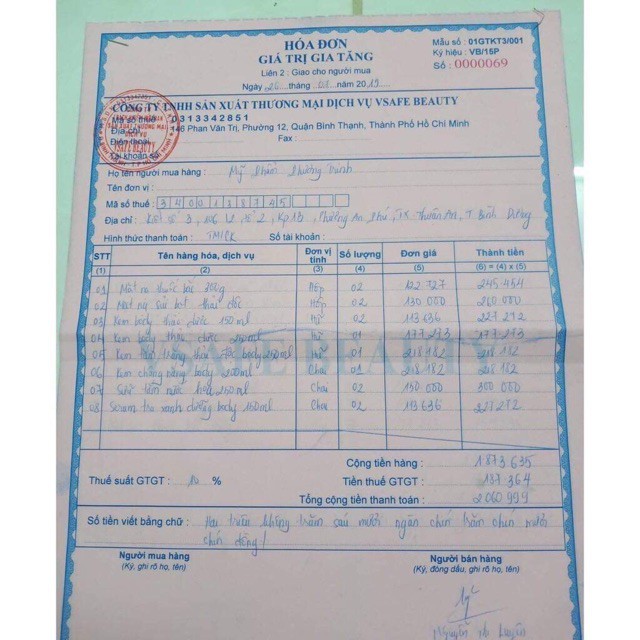 HÓA ĐƠN
GIÁ TRỊ GIA TĂNG
Liên 2 : Giao cho người mua
Ngày 26 tháng 07 năm 2019
Mẫu số : 01GTKT3/001
Ký hiệu : VB/16P
Số : 0000069
CÔNG TY TNHH SẢN XUẤT THƯƠNG MẠI DỊCH VỤ VSAFE BEAUTY
Mã số thuế : 0313342851
Địa chỉ : 146 Phan Văn Trị, Phường 12, Quận Bình Thạnh, Thành Phố Hồ Chí Minh
Điện thoại Fax :
Tài khoản số
VSAFE BEAUTY
Họ tên người mua hàng : Mỹ Phẩm Phương Trinh
Tên đơn vị :
Mã số thuế : 3400138745
Địa chỉ : 3, Kp 1B, Phường An Phú, TX Thuận An, T. Bình Dương
Hình thức thanh toán : TM/CK Số tài khoản :
STT Tên hàng hóa, dịch vụ Đơn vị tính Số lượng Đơn giá Thành tiền
(1) (2) (3) (4) (5) (6) = (4) x (5)
01 Mặt nạ thuốc bắc 200g Hộp 02 122 727 245 454
02 Mặt nạ sủi bọt thải độc Hộp 02 130 000 260 000
03 Kem body thảo dược 150ml Hũ 02 113 636 227 272
04 Kem body thảo dược 250ml Hũ 01 177 273 177 273
05 Kem tắm trắng body 250ml Hũ 01 218 182 218 182
06 Kem chống nắng body 200ml Chai 01 218 182 218 182
07 Sữa tắm nước hoa 250ml Chai 02 150 000 300 000
08 Serum tra xanh dưỡng body 150ml Chai 02 113 636 227 272
VSAFE BEAUTY
Cộng tiền hàng : 1 873 635
Thuế suất GTGT : 10 % Tiền thuế GTGT : 187 364
Tổng cộng tiền thanh toán : 2 060 999
Số tiền viết bằng chữ : Hai triệu không trăm sáu mươi ngàn chín trăm chín mươi
chín đồng /
Người mua hàng
(Ký, ghi rõ họ, tên)
Người bán hàng
(Ký, đóng dấu, ghi rõ họ, tên)
Nguyễn Thị Luyến